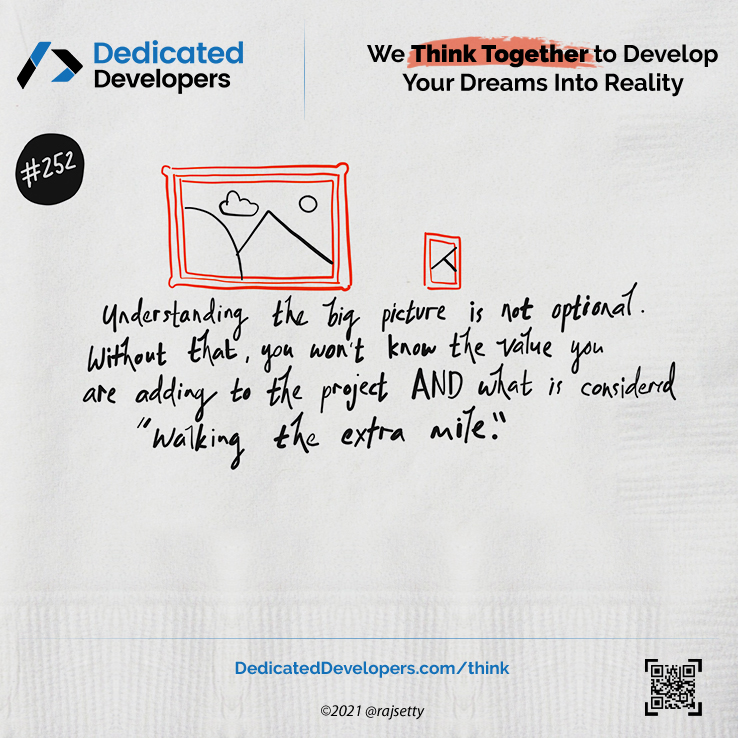 Dedicated
Developers
We Think Together to Develop
Your Dreams Into Reality
#252
Understanding the big picture is not optional.
Without that, you won't know the value you
are adding to the project AND what is considered
"Walking the extra mile."
DedicatedDevelopers.com/think
©2021 @rajsetty